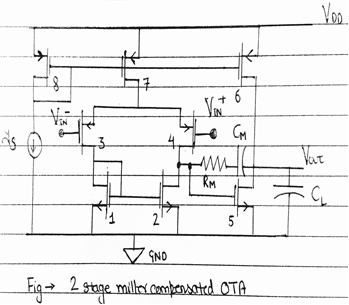 VDD
8
7
6
Vin-
Vin+
3
4
CM
Vout
Is
RM
CL
1
2
5
GND
Fig → 2 stage miller compensated OTA